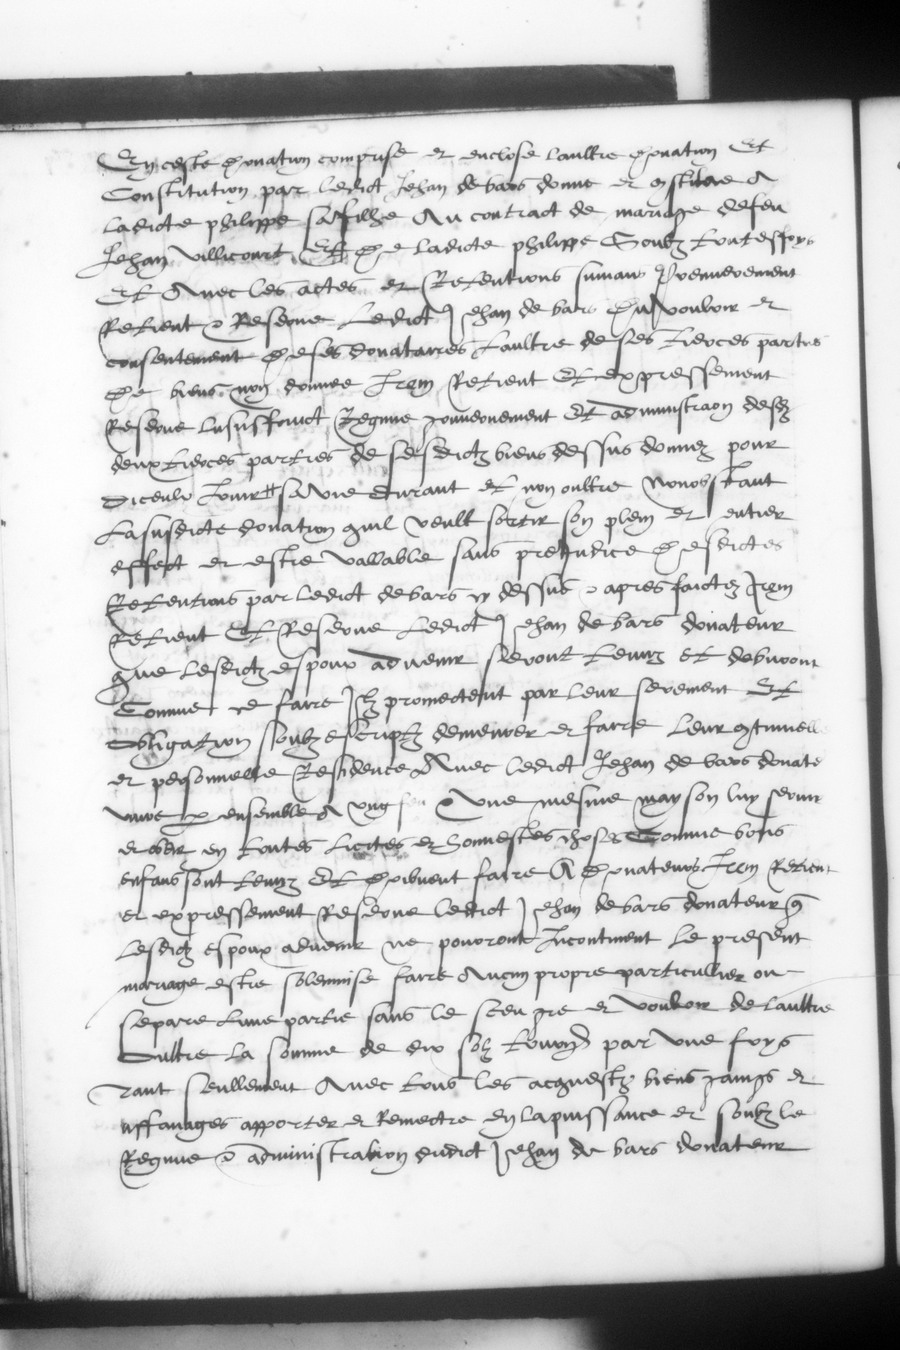 En ceste donation comprise et enclose laultre donation Et
Constitution par ledict Jehan de bars donne et constitue a
ladicte philippe sa filhe Au contract de mariage defeu
Jehan villicourt Et de ladicte philippe Soubz toutesfoys
Et Avec les actes et Retentions suivans
Retient & Reserve Ledict Jehan de bars du vouloir et
consentement de ses donataires Laultre de ses tierces parties
de biens non donnee Item Retient Et expressement
Reserve lusuffruict Regime gouvernement Et administraon desd
deux tierces parties de sesdictz biens dessus donnez pour
diceulx Jouir sa Vie durant et non oultre Nonobstant
La susdicte donation quil veult sortir son plein et entier
effect et estre vallable sans preiudice desdictes
Retentions par ledict de bars cy dessus & apres faictez Item
Retient Et Reserve Ledict Jehan de bars donateur
que lesdictz espoux advenir seront tenuz et debvront
Comme ce faire Ilz promectent par leur serement Et
Obligation soubz escriptz demeurer et faire leur continuelle
et personnelle Residence Avec ledict Jehan de bars donate
vivre ensemble A Ung feu & Une mesme mayson luy servir
et obeir en toutes licites et honnestes choses Comme bons
enfans sont tenuz Et doibvent faire A donateurs Item Retient
et expressement Reserve ledict Jehan de bars donateur q
Lesdictz espoux advenir ne pourront Incontinent le present
mariage estre solemnise faire Aucun propre particullier ou
separe Lune partie sans le sceu gre et vouloir de laultre
Oultre la somme de dix solz tourn par une foys
Tant seullement Avec tous les acquestz biens gaings et
affanages apporter et Remectre en la puissance et soubz le
Regime & administration dudict Jehan de bars donateur